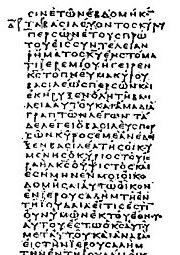 ϹΙΝΕΤΩΝΕΒΔΟΜΗΚ
ΒΑϹΙΛΕΥΟΝΤΟϹΚΥΡΥ
ΠΕΡϹΩΝΕΤΟΥϹΠΡΩ
ΤΟΥΕΙϹϹΥΝΤΕΛΕΙΑΝ
ΡΗΜΑΤΟϹΚΥΕΝϹΤΟΜΑ
ΤΙΙΕΡΕΜΙΟΥΗΓΕΙΡΕΝ
ΚϹΤΟΠΝΕΥΜΑΚΥΡΟΥ
ΒΑϹΙΛΕΩϹΠΕΡϹΩΝΚΑΙ
ΕΚΗΡΥΞΕΝΟΛΗΤΗΒΑϹΙ
ΛΕΙΑΑΥΤΟΥΚΑΙΑΜΑΔΙΑ
ΓΡΑΠΤΩΝΛΕΓΩΝΤΑ
ΔΕΛΕΓΕΙΟΒΑϹΙΛΕΥϹΠΕΡ
ϹΩΝΚΥΡΟϹΕΜΕΑΝΕΔΕΙ
ΞΕΝΒΑϹΙΛΕΑΤΗϹΟΙΚΟΥ
ΜΕΝΗϹΟΚΥΡΙΟϹΤΟΥΙϹ
ΡΑΗΛΚϹΟΥΨΙϹΤΟϹΚΑΙ
ΕϹΗΜΗΝΕΝΜΟΙΟΙΚΟ
ΔΟΜΗϹΑΙΑΥΤΩΟΙΚΟΝ
ΕΝΙΕΡΟΥϹΑΛΗΜΤΗΕΝ
ΤΗΙΟΥΔΑΙΑΕΙΤΙϹΕϹΤΙ
ΟΥΝΥΜΩΝΕΚΤΟΥΕΘΝΟΥ
ΑΥΤΟΥΕϹΤΩΟΚϹΑΥΤΟΥ
ΜΕΤΑΥΤΟΥΚΑΙΑΝΑ
ΒΑϹΕΙϹΤΗΝΙΕΡΟΥϹΑΛΗΜ